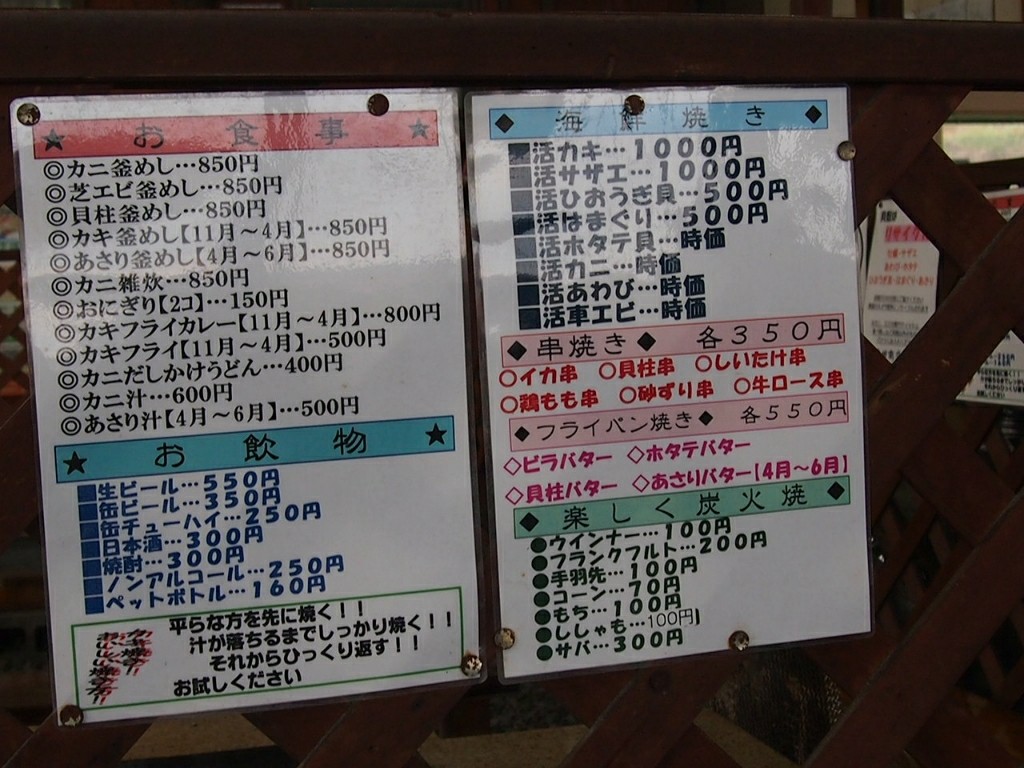 ★ お食事 ★
◎カニ釜めし…850円
◎芝エビ釜めし…850円
◎貝柱釜めし…850円
◎カキ釜めし【11月～4月】…850円
◎あさり釜めし【4月～6月】…850円
◎カニ雑炊…850円
◎おにぎり【2コ】…150円
◎カキフライカレー【11月～4月】…800円
◎カキフライ【11月～4月】…500円
◎カニだしかけうどん…400円
◎カニ汁…600円
◎あさり汁【4月～6月】…500円
★ お飲物 ★
■生ビール…550円
■缶ビール…350円
■缶チューハイ…250円
■日本酒…300円
■焼酎…300円
■ノンアルコール…250円
■ペットボトル…160円
カキ焼き!!
おいしい焼き方!!
平らな方を先に焼く！！
汁が落ちるまでしっかり焼く！！
それからひっくり返す！！
お試しください
◆ 海鮮焼き ◆
■活カキ…1000円
■活サザエ…1000円
■活ひおうぎ貝…500円
■活はまぐり…500円
■活ホタテ貝…時価
■活カニ…時価
■活あわび…時価
■活車エビ…時価
◆串焼き◆ 各350円
○イカ串 ○貝柱串 ○しいたけ串
○鶏もも串 ○砂ずり串 ○牛ロース串
◆フライパン焼き◆ 各550円
◇ビラバター ◇ホタテバター
◇貝柱バター ◇あさりバター【4月～6月】
◆ 楽しく炭火焼 ◆
●ウインナー…100円
●フランクフルト…200円
●手羽先…100円
●コーン…70円
●もち…100円
●ししゃも…100円
●サバ…300円